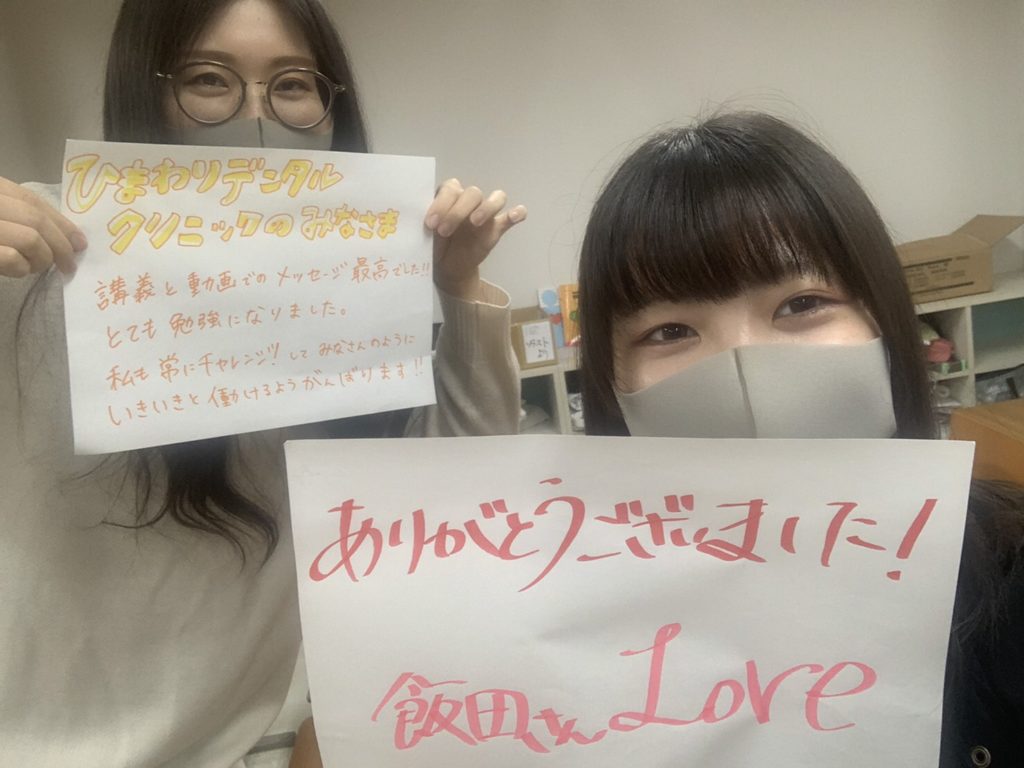 ひまわりデンタル
クリニックのみなさま
講義と動画でのメッセージ最高でした!!
とても勉強になりました。
私も常にチャレンジ!して みなさんのように
いきいきと働けるようがんばります!!
ありがとうございました!
飯田さんLove